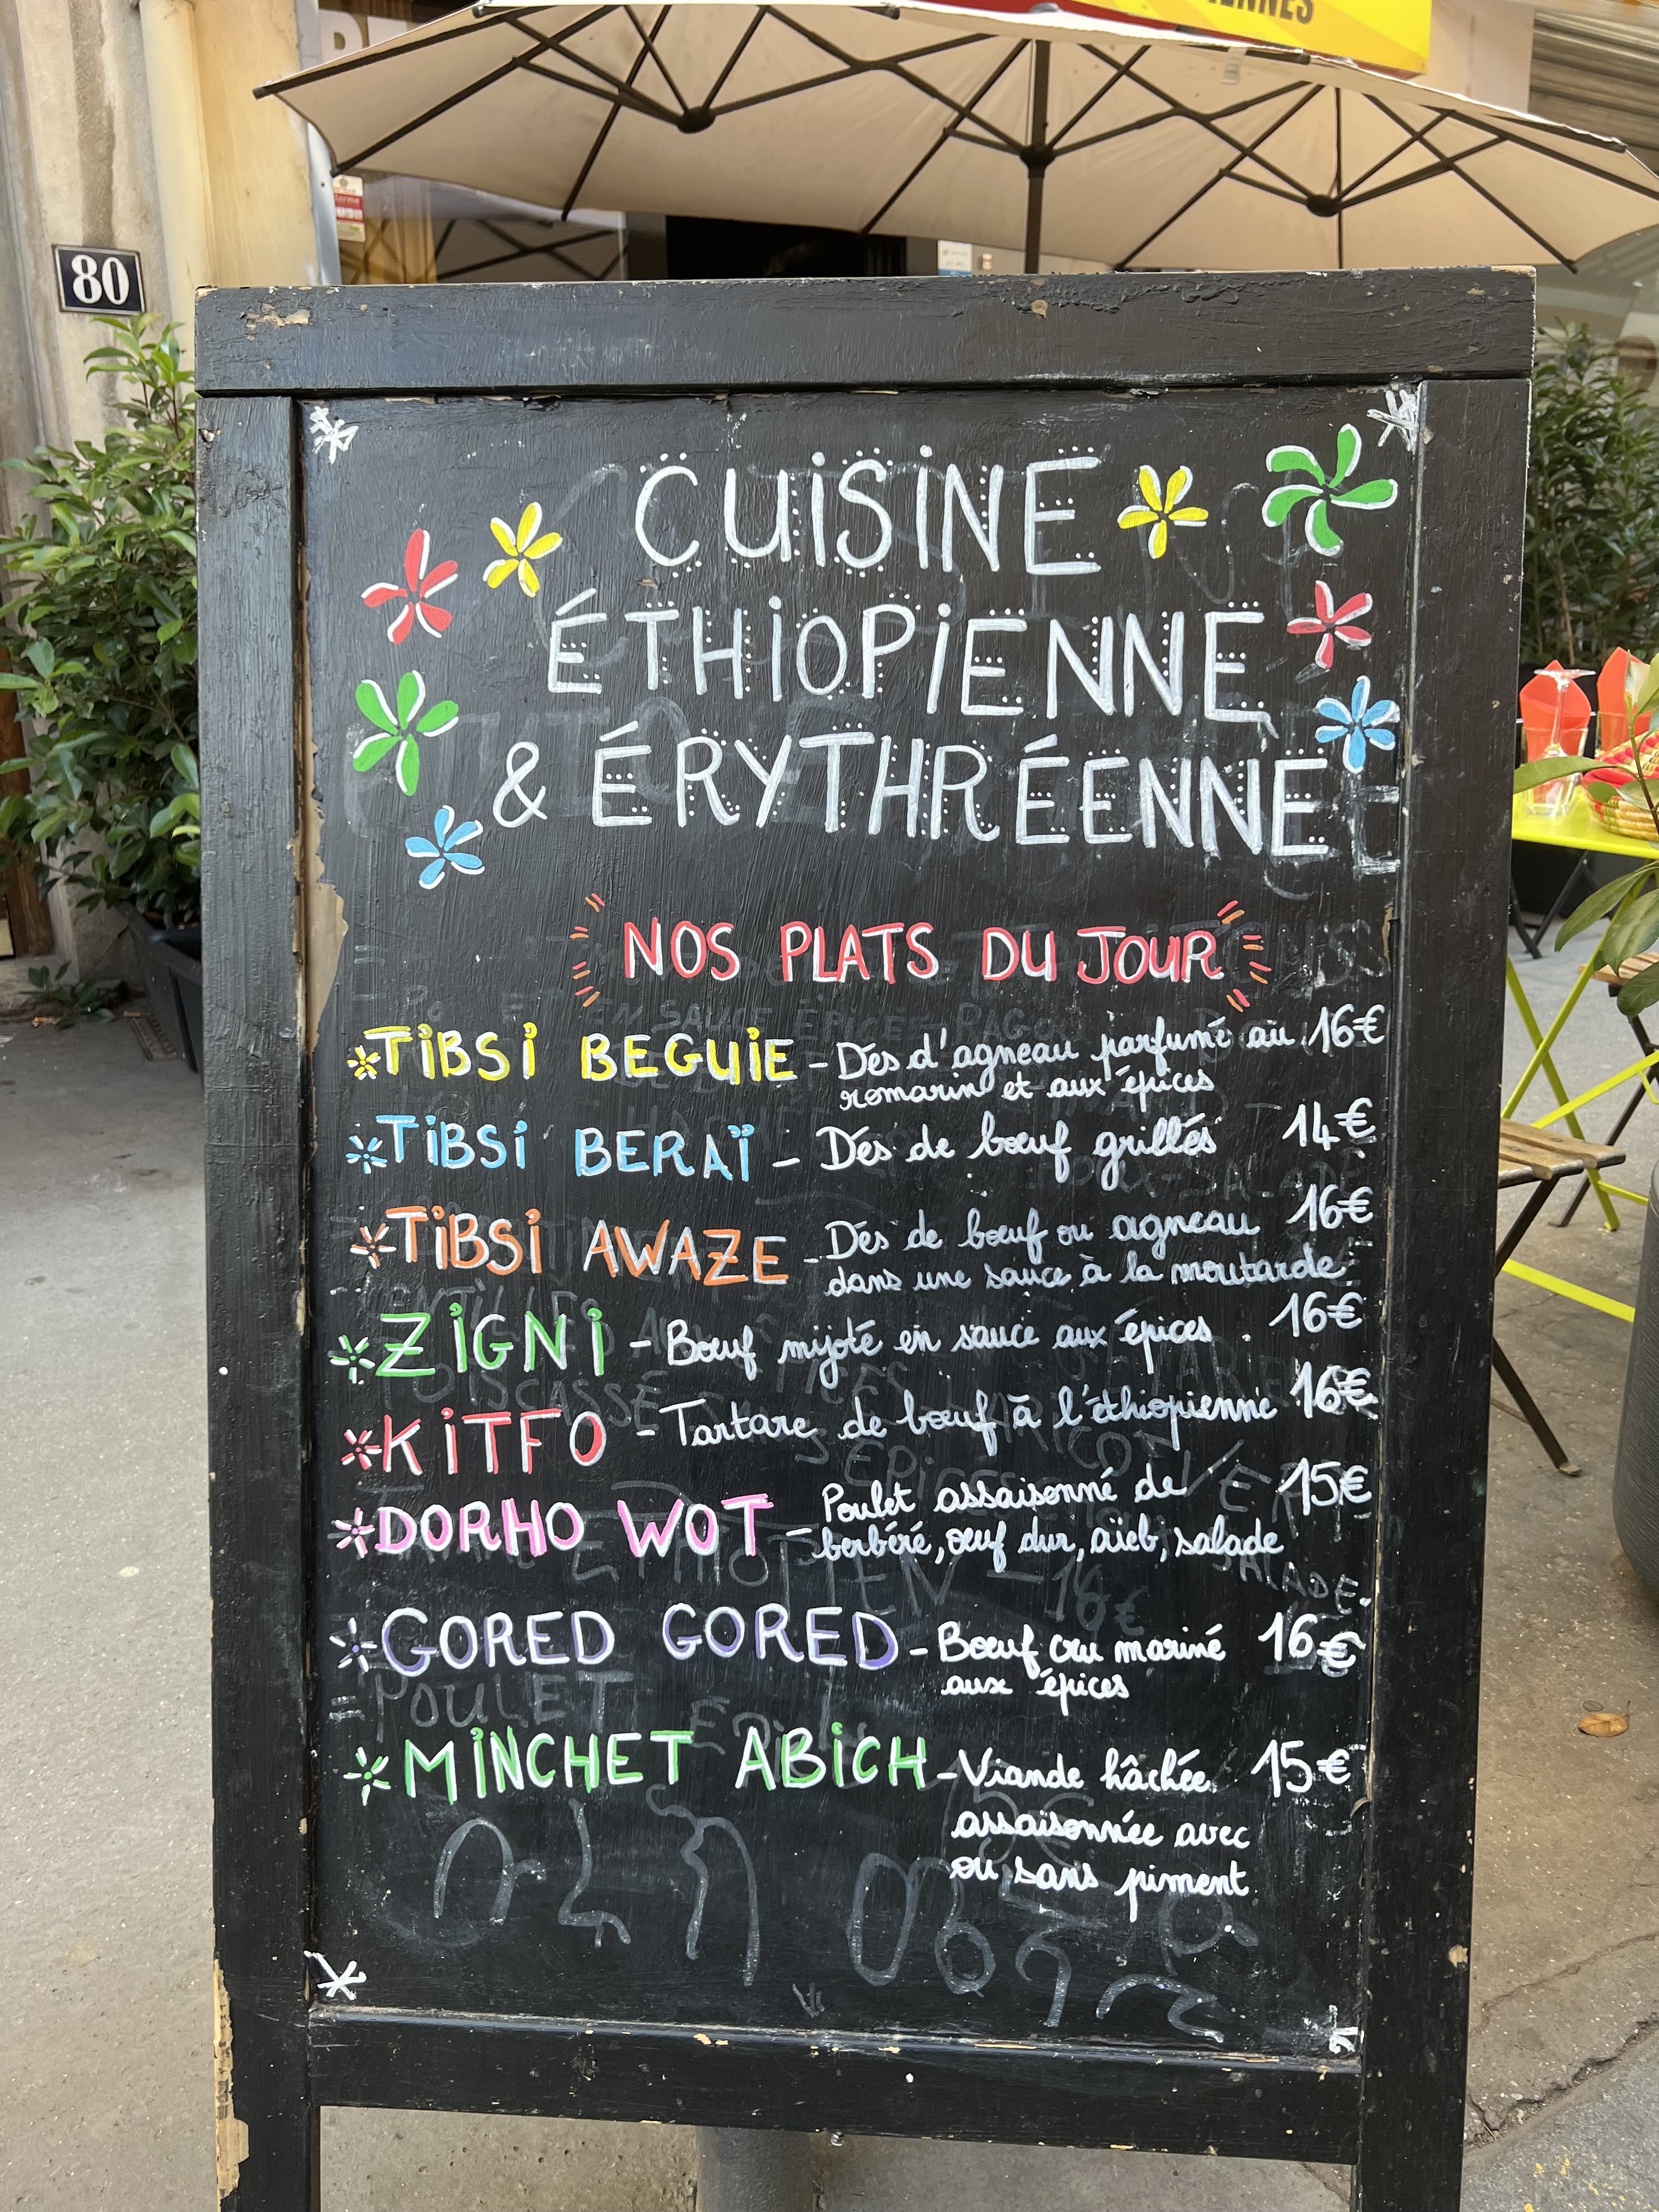 80
CUISINE
ÉTHIOPIENNE
& ÉRYTHRÉENNE
NOS PLATS DU JOUR
TIBSI BEGUIE - Dés d'agneau parfumé au 16€
romarin et aux épices
TIBSI BERAÏ - Dés de bœuf grillés 14€
TIBSI AWAZE - Dés de bœuf ou agneau 16€
dans une sauce à la moutarde
ZIGNI - Bœuf mijoté en sauce aux épices 16€
KITFO - Tartare de bœuf à l'éthiopienne 16€
DORHO WOT - Poulet assaisonné de 15€
berbéré, œuf dur, aïeb, salade
GORED GORED - Bœuf cru mariné 16€
aux épices
MINCHET ABICH - Viande hâchée 15€
assaisonnée avec
ou sans piment